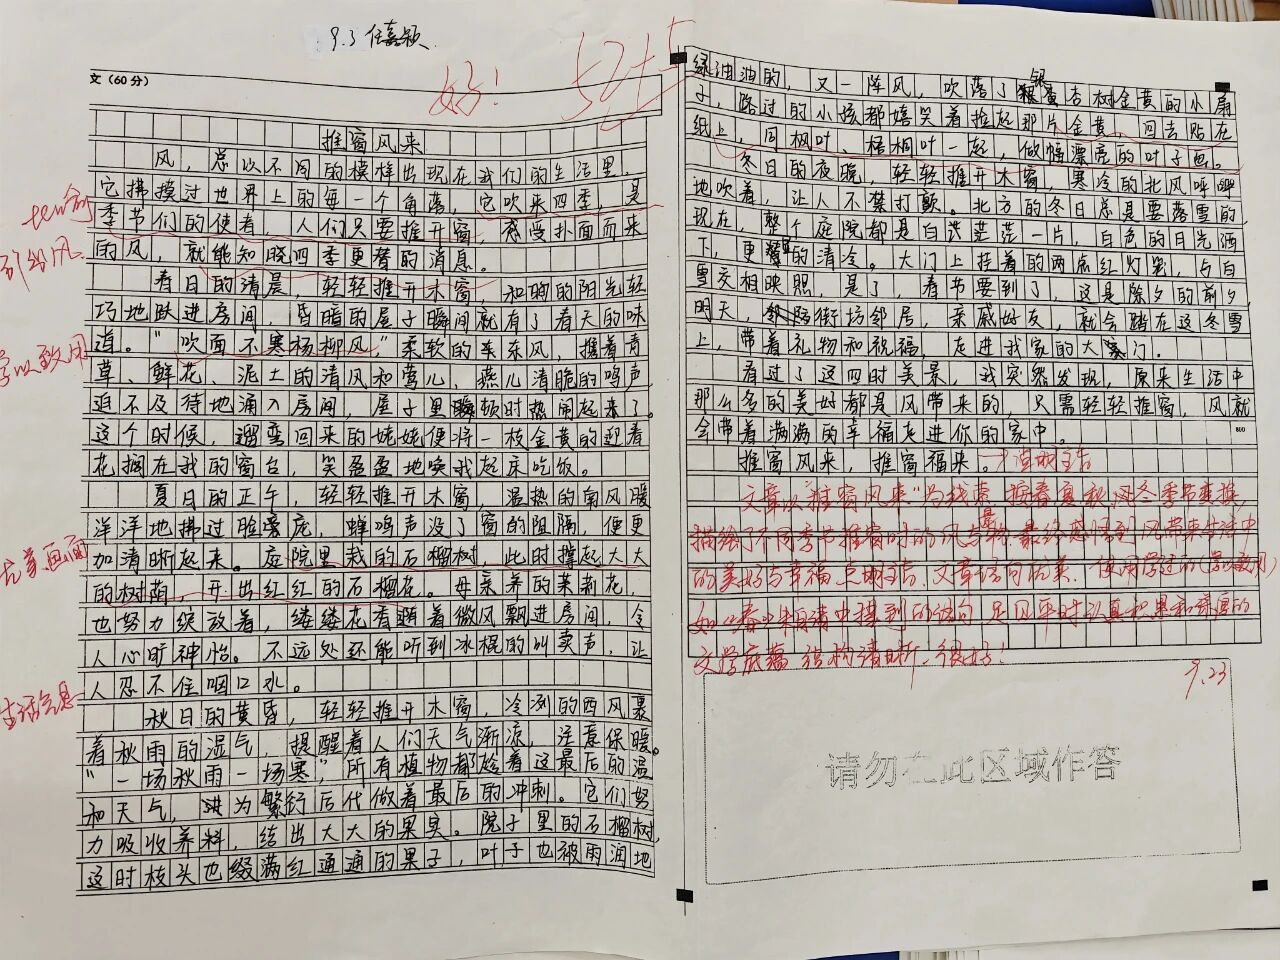 9.3 任嘉颖
好！ 52+5
文（60分）
推窗风来
风，总以不同的模样出现在我们的生活里，
它拂摸过世界上的每一个角落，它吹来四季，是
季节们的使者，人们只要推开窗，感受扑面而来
的风，就能知晓四季更替的消息。
春日的清晨，轻轻推开木窗，和煦的阳光轻
巧地跃进房间，昏暗的屋子瞬间就有了春天的味
道。“吹面不寒杨柳风”柔软的东风，携着青
草、鲜花、泥土的清风和莺儿，燕儿清脆的鸣声
迫不及待地涌入房间，屋子里顿时热闹起来了。
这个时候，遛弯回来的姥姥便将一枝金黄的迎春
花搁在我的窗台，笑盈盈地唤我起床吃饭。
夏日的正午，轻轻推开木窗，温热的南风暖
洋洋地拂过脸庞，蝉鸣声没了窗的阻隔，便更
加清晰起来。庭院里栽的石榴树，此时撑起大大
的树荫，开出红红的石榴花。母亲养的茉莉花，
也努力绽放着，缕缕花香随着微风飘进房间，令
人心旷神怡。不远处还能听到冰棍的叫卖声，让
人忍不住咽口水。
秋日的黄昏，轻轻推开木窗，冷冽的西风裹
着秋雨的湿气，提醒着人们天气渐凉，注意保暖。
“一场秋雨一场寒”，所有植物都趁着这最后的温
和天气，为繁衍后代做着最后的冲刺。它们努
力吸收养料，结出大大的果实。院子里的石榴树，
这时枝头也缀满红通通的果子，叶子也被雨润地
比喻
引出风
学以致用
生活气息
绿油油的，又一阵风，吹落了银杏树金黄的小扇
子，路过的小孩都嬉笑着捡起那片金黄，回去贴在
纸上，同枫叶、梧桐叶一起，做幅漂亮的叶子画。
冬日的夜晚，轻轻推开木窗，寒冷的北风呼呼
地吹着，让人不禁打颤。北方的冬日总是要落雪的，
现在，整个庭院都是白茫茫一片，白色的月光洒
下，更的清冷。大门上挂着的两盏红灯笼，与白
雪交相映照，是了，春节要到了，这是除夕的前夕，
明天，街坊邻居，亲戚好友，就会踏在这冬雪
上，带着礼物和祝福，走进我家的大门。
看过了这四时美景，我突然发现，原来生活中
那么多的美好都是风带来的，只需轻轻推窗，风就
会带着满满的幸福走进你的家中。
800
推窗风来，推窗福来。点明主旨
文章以“推窗风来”为线索，按春夏秋冬季节变换，
描绘了不同季节推窗时的风与景，最终感悟到风带来生活中
的美好与幸福，点明主旨，文章语句优美，使用学过的（学以致用）
如《春》中的语句，足见平时认真积累和深厚的
文学底蕴，结构清晰，很好！
9.23
请勿在此区域作答